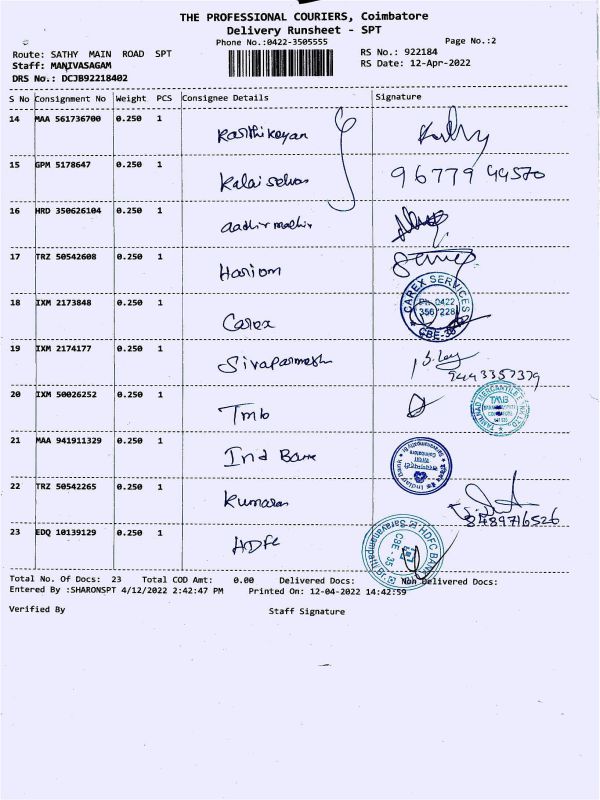 THE PROFESSIONAL COURIERS, Coimbatore
Delivery Runsheet - SPT
Phone No.:0422-3505555 Page No.:2
Route: SATHY MAIN ROAD SPT RS No.: 922184
Staff: MANIVASAGAM RS Date: 12-Apr-2022
DRS No.: DCJB92218402
S No Consignment No Weight PCS Consignee Details Signature
14 MAA 561736700 0.250 1 Karthikeyan
15 GPM 5178647 0.250 1 Kalaiselvan 96779 44570
16 HRD 350626104 0.250 1
17 TRZ 50542608 0.250 1 Hariom
18 IXM 2173848 0.250 1 Carex
CAREX SERVICES
Ph: 0422
CBE-35
19 IXM 2174177 0.250 1 9443357379
20 IXM 50026252 0.250 1 Tmb
TAMILNAD MERCANTILE BANK LTD
TMB
21 MAA 941911329 0.250 1 Ind Bank
Indian Bank
22 TRZ 50542265 0.250 1 Kumaran 8489716526
23 EDQ 10139129 0.250 1 HDFC
HDFC BANK
CBE - 35
Saravanampatti
Total No. Of Docs: 23 Total COD Amt: 0.00 Delivered Docs: Non Delivered Docs:
Entered By :SHARONSPT 4/12/2022 2:42:47 PM Printed On: 12-04-2022 14:42:59
Verified By Staff Signature